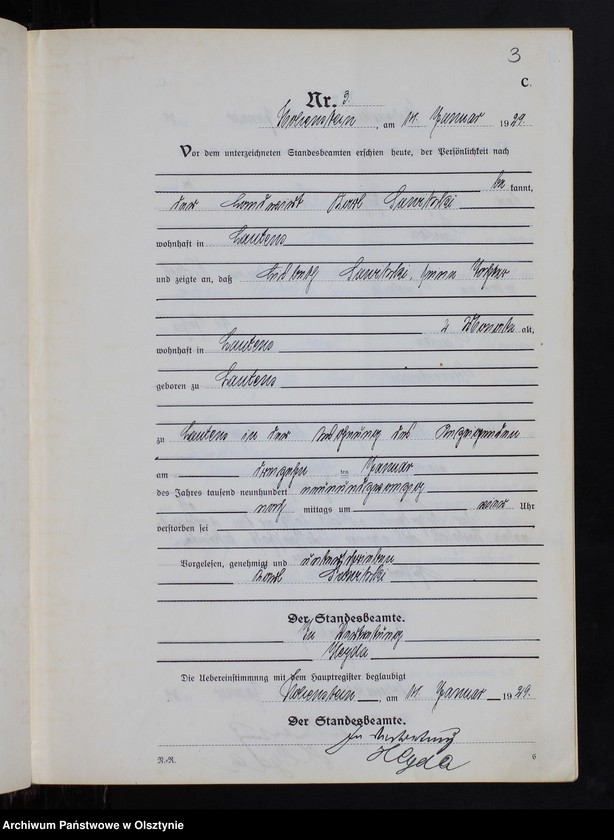 3
C.
Nr. 3
Hohenstein, am 14. Januar 1929.
Vor dem unterzeichneten Standesbeamten erschien heute, der Persönlichkeit nach
be kannt,
der Landwirt Karl
wohnhaft in Lautens
und zeigte an, daß seine Tochter
2 Monate alt,
wohnhaft in Lautens
geboren zu Lautens
zu Lautens in der Wohnung des Angezeigenden
am ten Januar
des Jahres tausend neunhundert neunundzwanzig
nach mittags um vier Uhr
verstorben sei
Vorgelesen, genehmigt und unterschrieben
Karl
Der Standesbeamte.
In Vertretung
Heyda
Die Uebereinstimmung mit dem Hauptregister beglaubigt
Hohenstein, am 14. Januar 1929.
Der Standesbeamte.
In Vertretung
Heyda
N.-R.
6
Archiwum Państwowe w Olsztynie